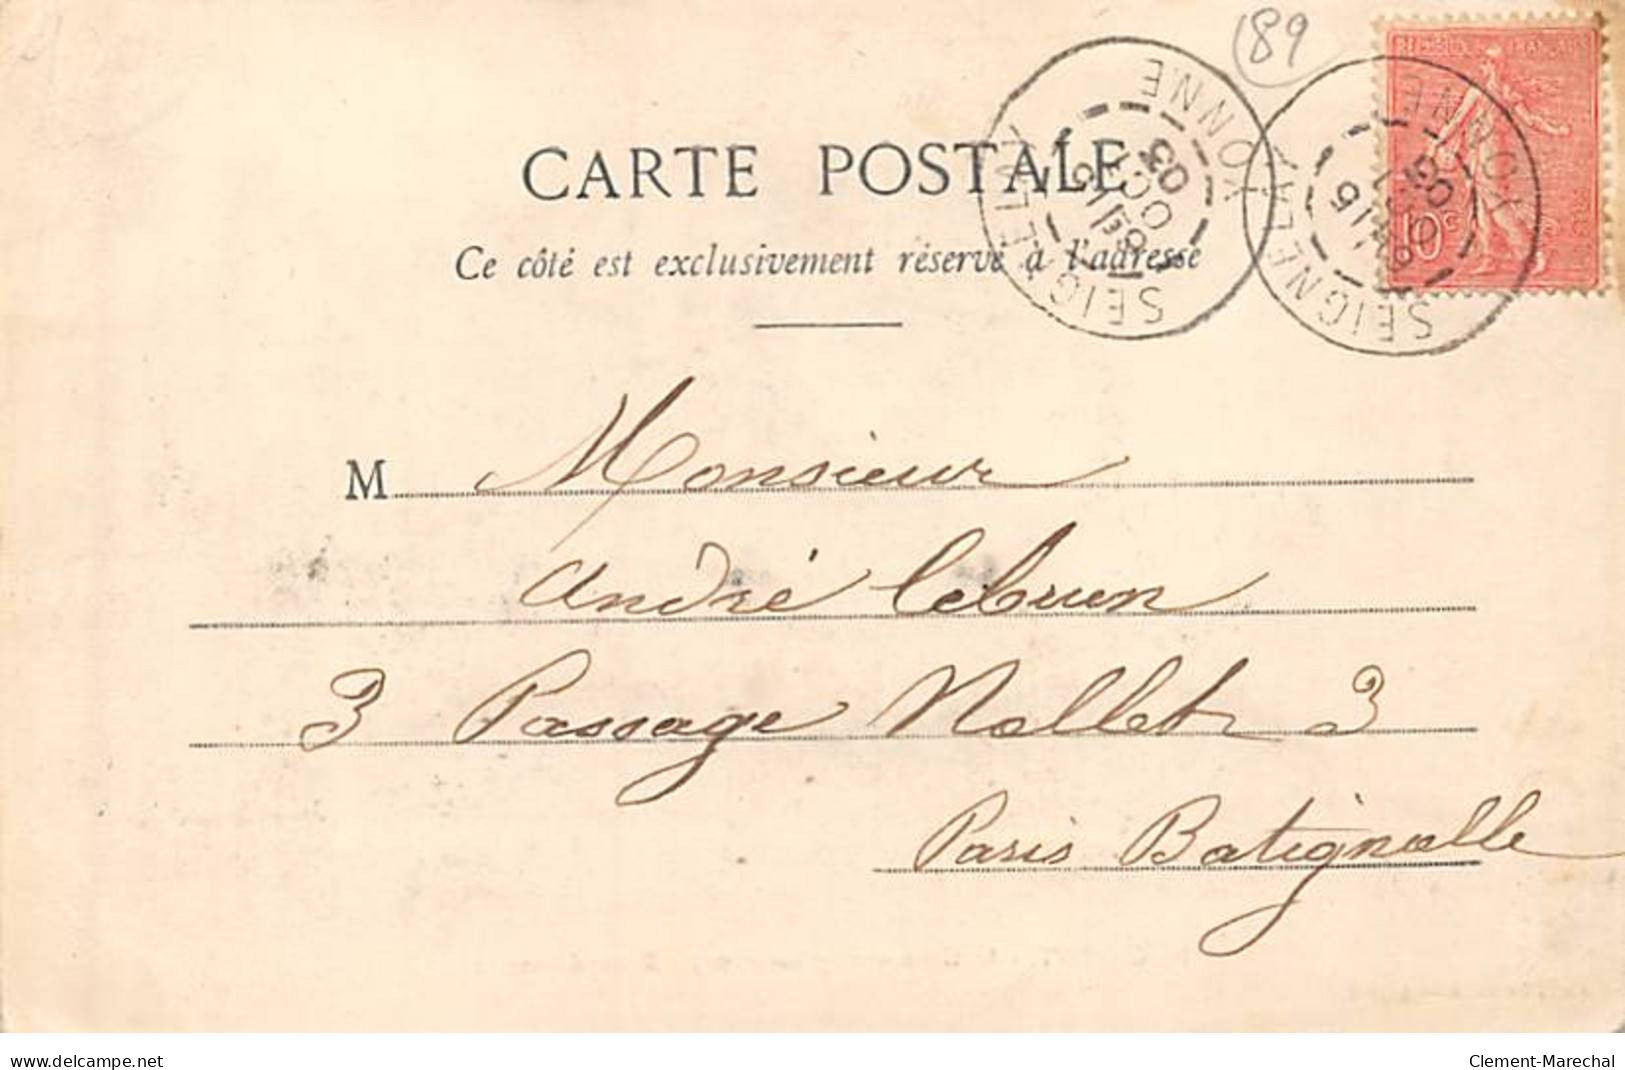 189
REPUBLIQUE FRANÇAISE
10c
SEIGNELAY
YONNE
OCT
03
SEIGNELAY
YONNE
CARTE POSTALE
Ce côté est exclusivement réservé à l'adresse
M Monsieur
André Lebrun
3 Passage Nollet 3
Paris Batignolle
www.delcampe.net
Clement-Marechal